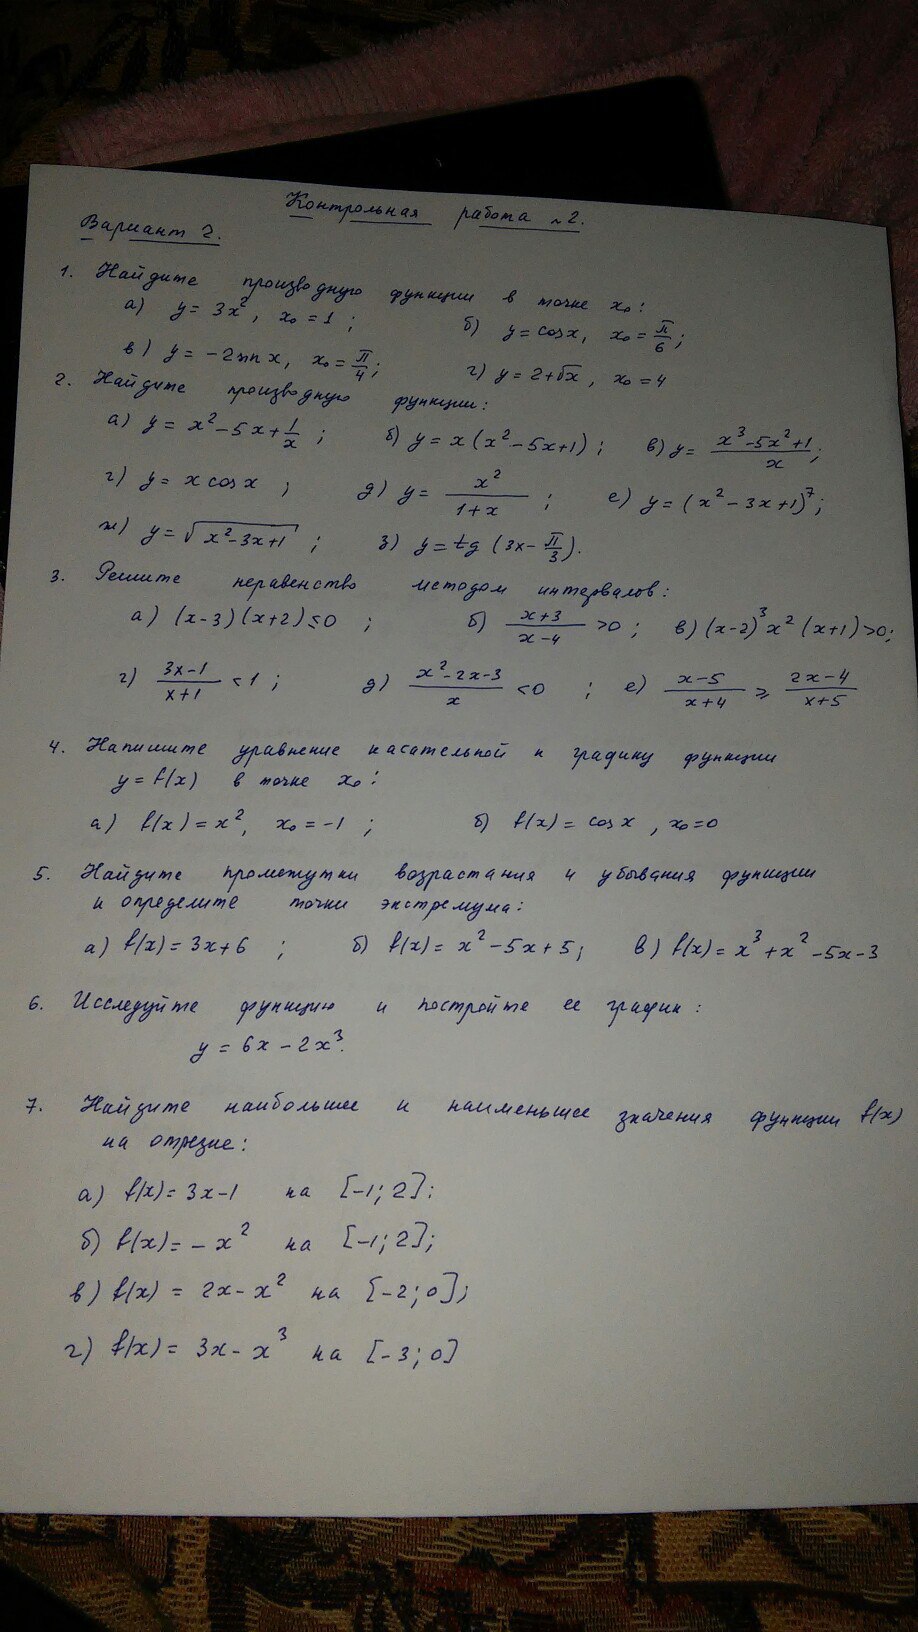 Контрольная работа №2.
Вариант 2.
1. Найдите производную функции в точке x₀:
а) y = 3x², x₀ = 1; б) y = cos x, x₀ = π/6;
в) y = -2sin x, x₀ = π/4; г) y = 2+√x, x₀ = 4
2. Найдите производную функции:
а) y = x² - 5x + 1/x; б) y = x(x² - 5x + 1); в) y = (x³ - 5x² + 1)/x;
г) y = x cos x; д) y = x²/(1+x); е) y = (x² - 3x + 1)⁷;
ж) y = √(x² - 3x + 1); з) y = tg (3x - π/3).
3. Решите неравенство методом интервалов:
а) (x-3)(x+2) ≤ 0; б) (x+3)/(x-4) > 0; в) (x-2)³x²(x+1) > 0;
г) (3x-1)/(x+1) < 1; д) (x²-2x-3)/x < 0; е) (x-5)/(x+4) ≥ (2x-4)/(x+5)
4. Напишите уравнение касательной к графику функции
y = f(x) в точке x₀:
а) f(x) = x², x₀ = -1; б) f(x) = cos x, x₀ = 0
5. Найдите промежутки возрастания и убывания функции
и определите точки экстремума:
а) f(x) = 3x+6; б) f(x) = x² - 5x + 5; в) f(x) = x³ + x² - 5x - 3
6. Исследуйте функцию и постройте ее график:
y = 6x - 2x³.
7. Найдите наибольшее и наименьшее значения функции f(x)
на отрезке:
а) f(x) = 3x-1 на [-1; 2];
б) f(x) = -x² на [-1; 2];
в) f(x) = 2x - x² на [-2; 0];
г) f(x) = 3x - x³ на [-3; 0]